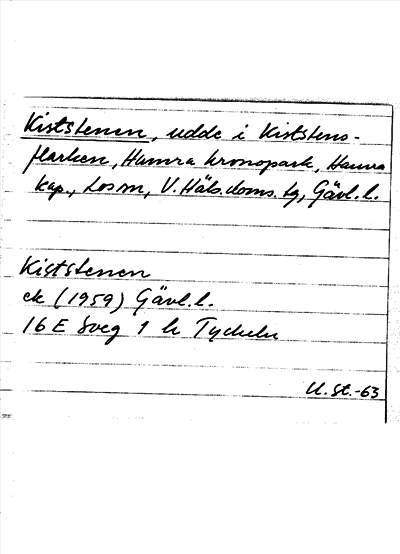 Kiststenen, udde i Kiststens-
flarken, Hamra kronopark, Hamra
kap., Los sn, V. Häls. doms. tg, Gävl. l.
Kiststenen
ek (1959) Gävl. l.
16 E Sveg 1 h Tyckeln
U. St.-63